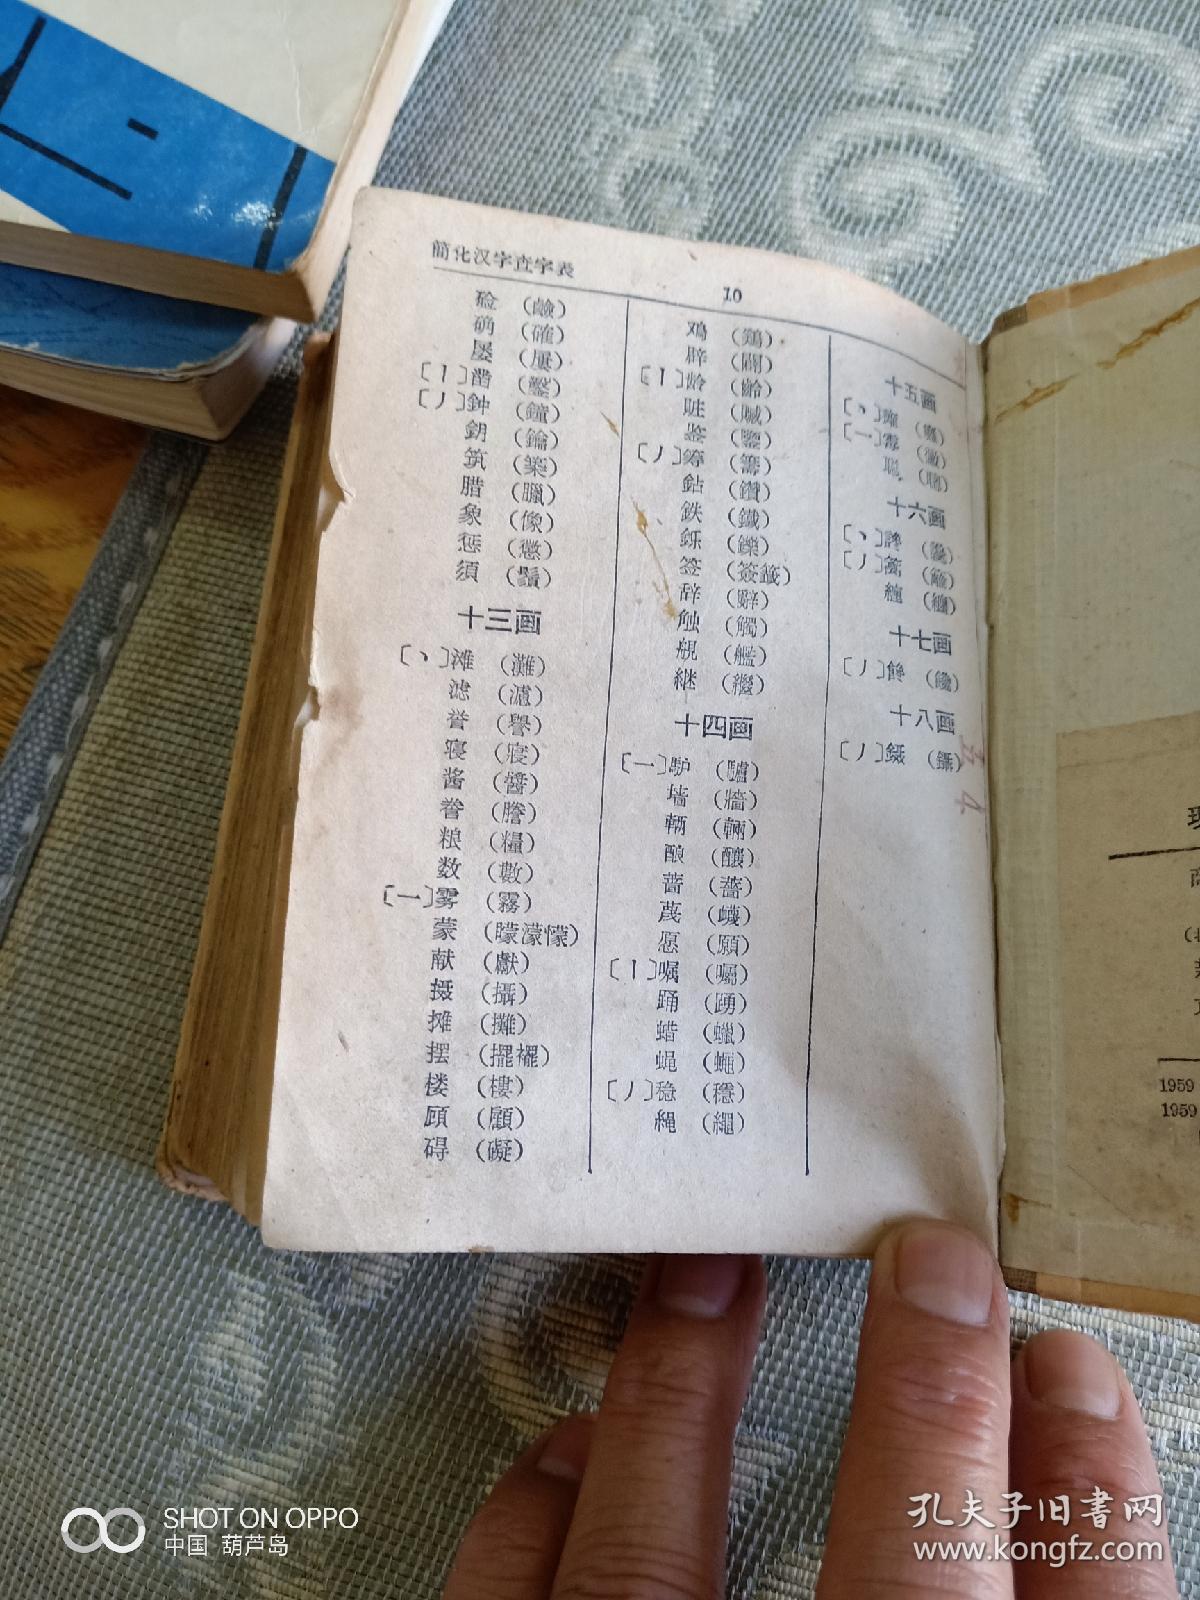 簡化汉字查字表
10
硷 (鹼)
确 (確)
屡 (屢)
〔丨〕凿 (鑿)
〔丿〕鈡 (鐘)
鈅 (鑰)
筑 (築)
腊 (臘)
象 (像)
惩 (懲)
須 (鬚)
十三画
〔丶〕滩 (灘)
滤 (濾)
誉 (譽)
寝 (寢)
酱 (醬)
誊 (謄)
粮 (糧)
数 (數)
〔一〕雾 (霧)
蒙 (矇濛懞)
献 (獻)
摄 (攝)
摊 (攤)
摆 (擺襬)
楼 (樓)
顾 (顧)
碍 (礙)
鸡 (鷄)
辟 (闢)
〔丨〕龄 (齡)
鉴 (鑒)
〔丿〕筹 (籌)
鉆 (鑽)
鉄 (鐵)
鈩 (鑠)
签 (簽籤)
辞 (辭)
触 (觸)
舰 (艦)
継 (繼)
十四画
〔一〕馿 (驢)
墙 (牆)
輌 (輛)
酿 (釀)
蔷 (薔)
蔑 (衊)
愿 (願)
〔丨〕嘱 (囑)
踊 (踴)
蜡 (蠟)
蝇 (蠅)
〔丿〕稳 (穩)
縄 (繩)
十五画
〔一〕霉 (黴)
聪 (聰)
十六画
〔丶〕讒 (讒)
〔丿〕篱 (籬)
十七画
〔丿〕馋 (饞)
十八画
〔丿〕鑷 (鑷)
1959
1959
SHOT ON OPPO
中国 葫芦岛
孔夫子旧書网
www.kongfz.com